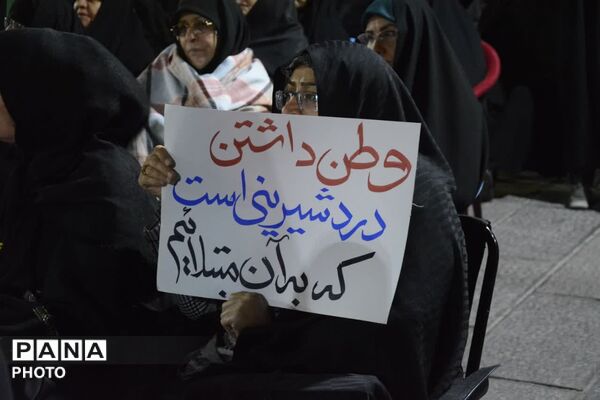 وطن داشتن
درد شیرینی است
که به آن مبتلائیم
PANA
PHOTO